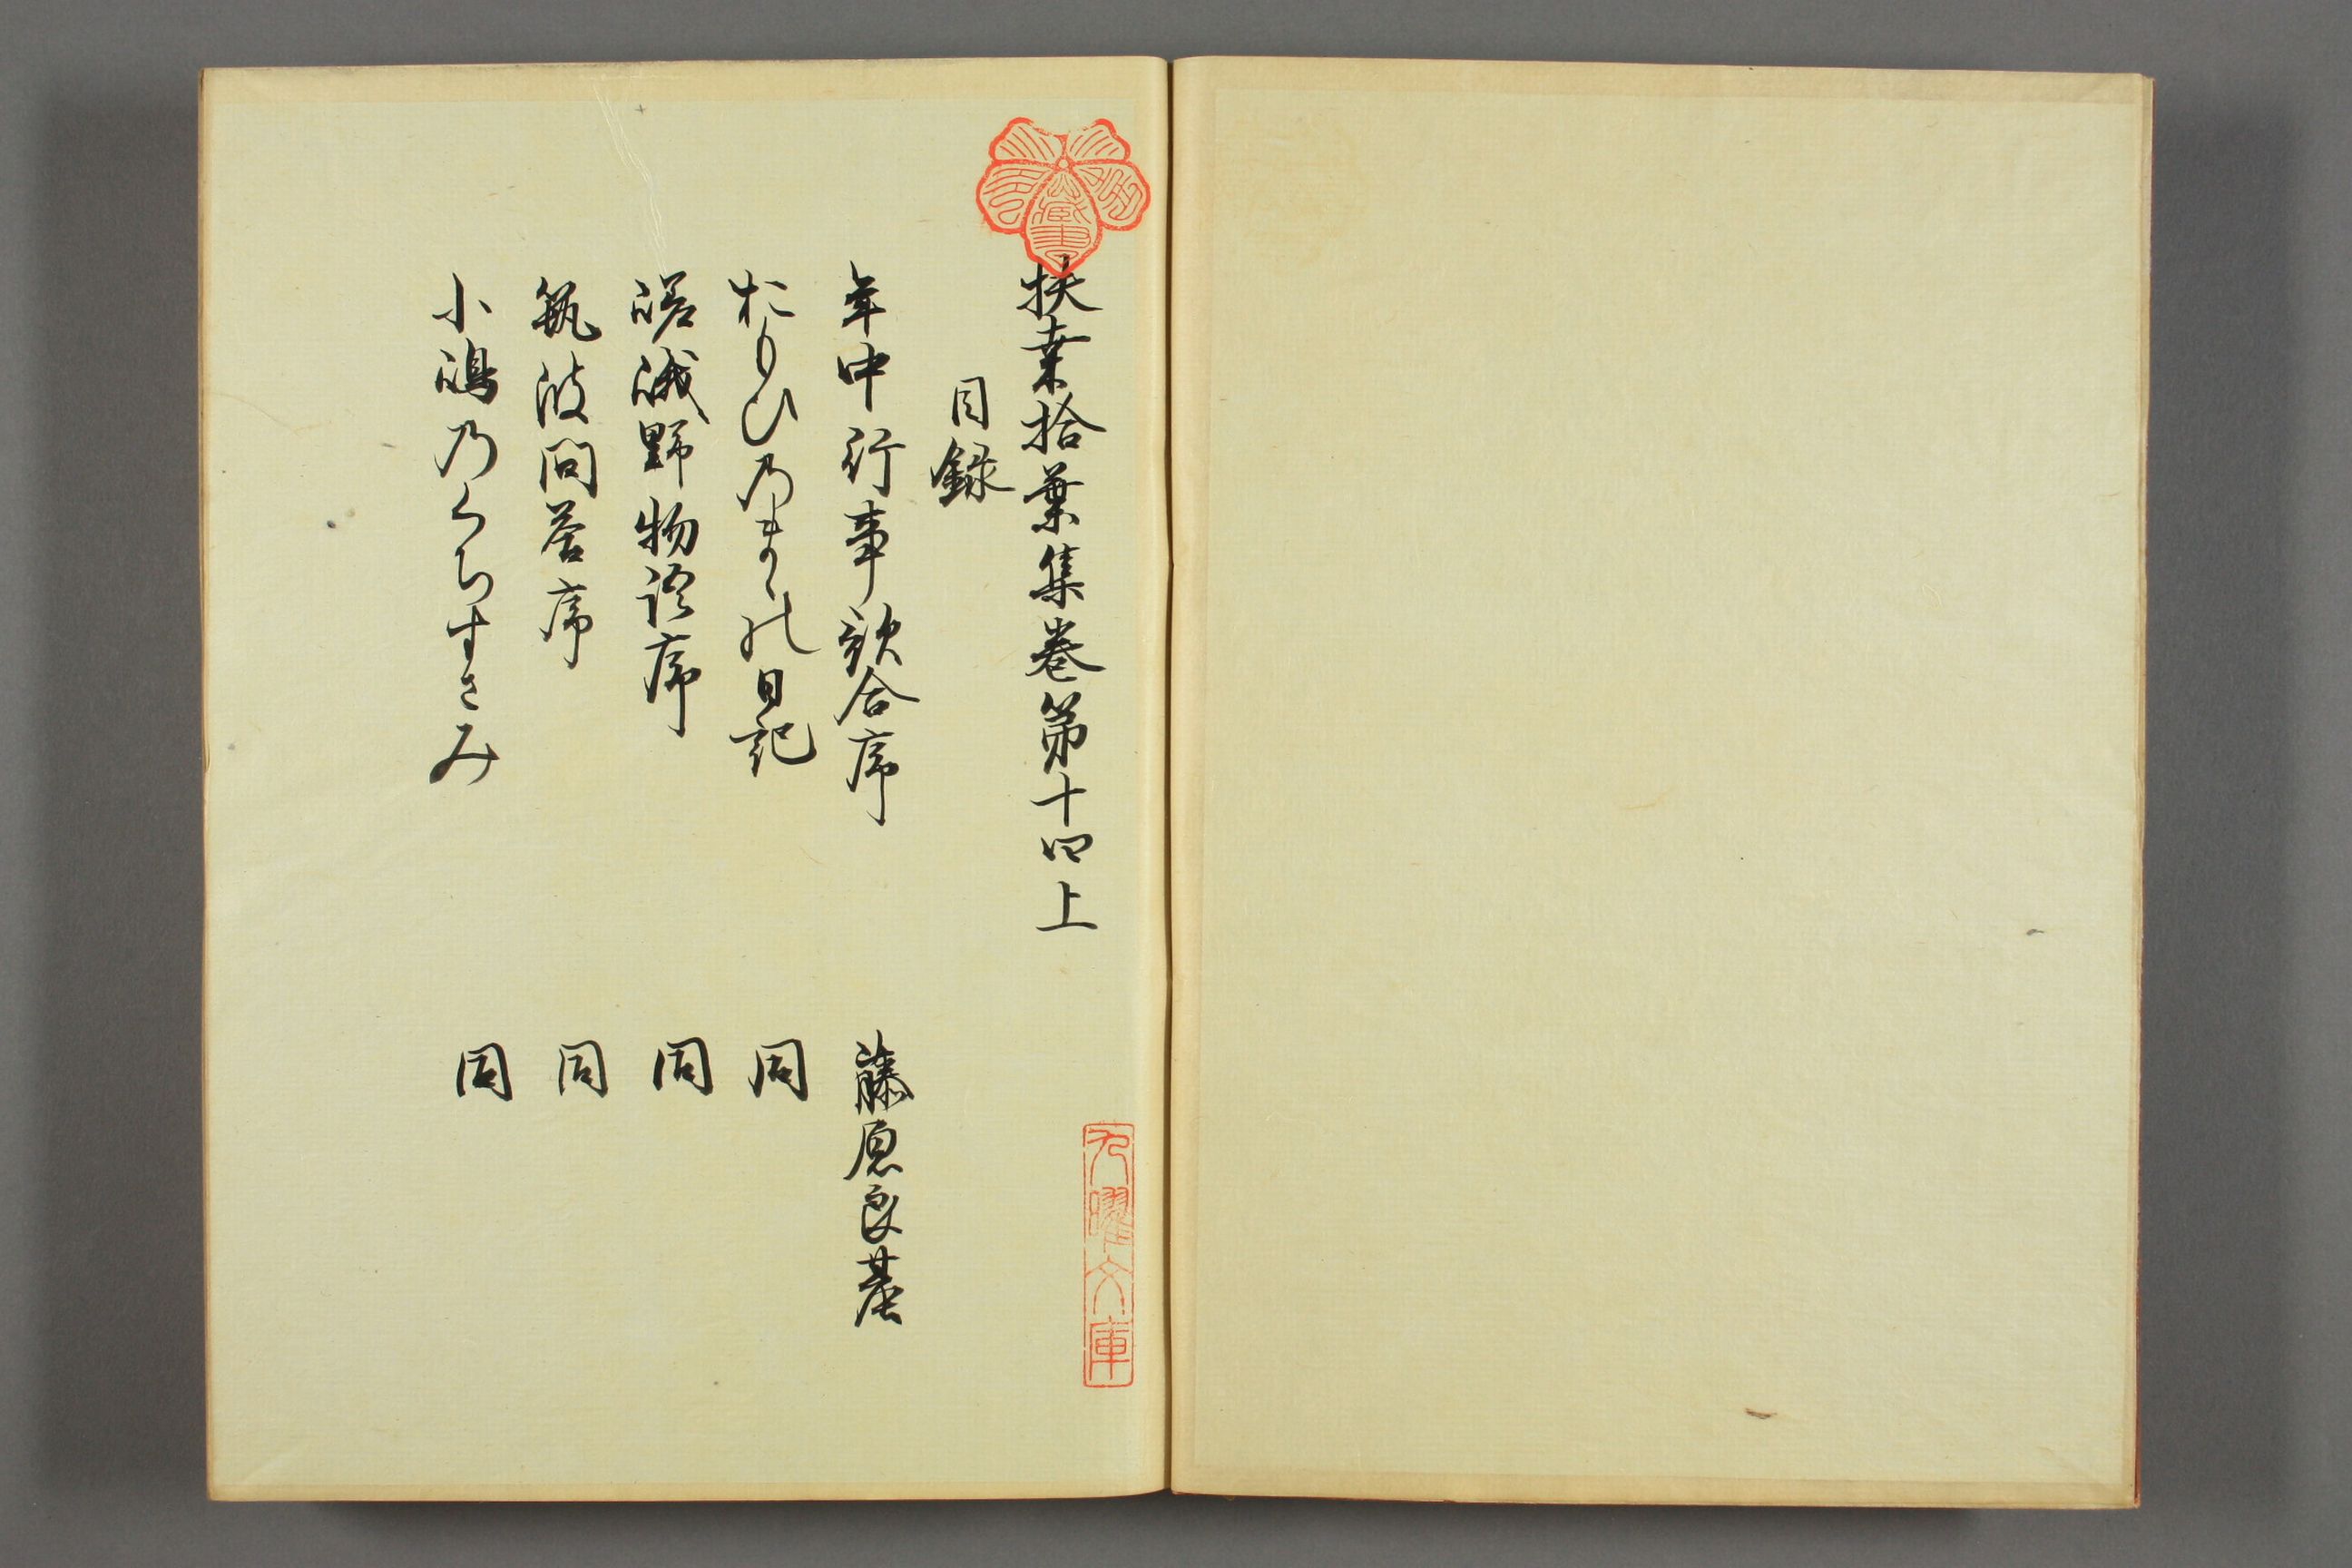 扶桒拾葉集巻第十四上
目録
年中行事歌合序　藤原良基
おもひ乃まゝの日記　同
嵯峨野物語序　同
筑波問答序　同
小嶋乃くちすさみ　同
九曜文庫